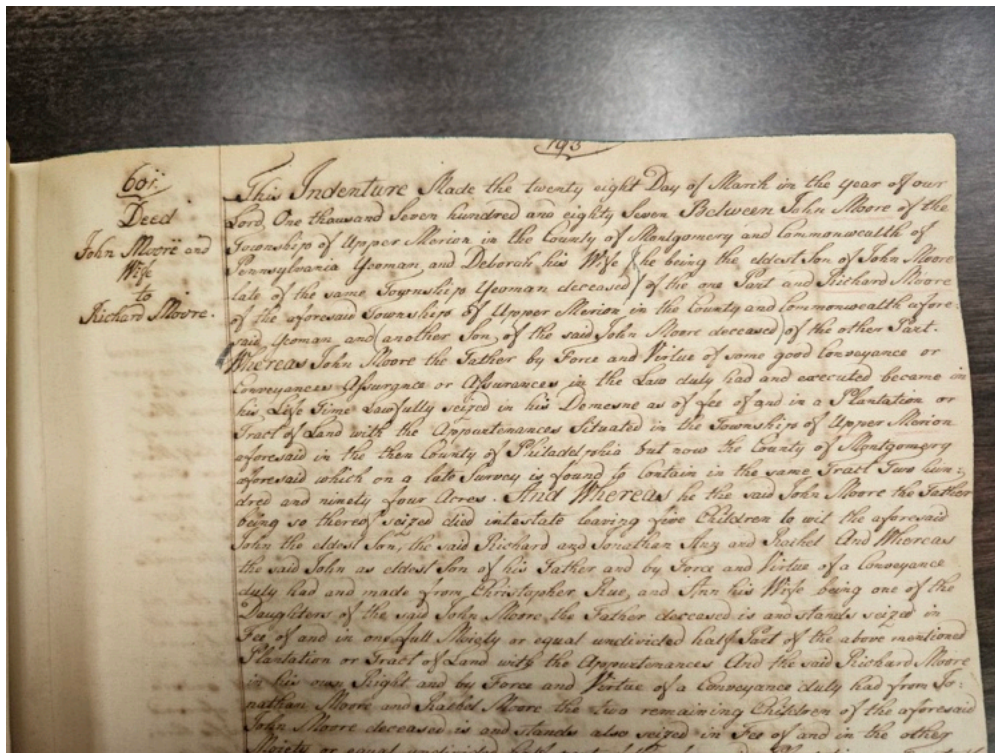 193
601.
Deed
John Moore and
Wife
to
Richard Moore.
This Indenture Made the twenty eight Day of March in the year of our
Lord, One thousand Seven hundred and eighty Seven Between John Moore of the
Township of Upper Merion in the County of Montgomery and Commonwealth of
Pennsylvania Yeoman, and Deborah his Wife (he being the eldest Son of John Moore
late of the same Township Yeoman deceased) of the one Part and Richard Moore
of the aforesaid Township of Upper Merion in the County and Commonwealth afore-
said Yeoman and (another Son of the said John Moore deceased) of the other Part.
Whereas John Moore the Father by Force and Virtue of some good Conveyance or
Conveyances Assurance or Assurances in the Law duly had and executed became in
his Life Time Lawfully seized in his Demesne as of Fee of and in a Plantation or
Tract of Land with the Appurtenances Situated in the Township of Upper Merion
aforesaid in the then County of Philadelphia but now the County of Montgomery
aforesaid which on a late Survey is found to contain in the same Tract Two hun-
dred and ninety four Acres. And Whereas he the said John Moore the Father
being so thereof seized died intestate leaving five Children to wit the aforesaid
John the eldest Son, the said Richard and Jonathan Ann and Rachel And Whereas
the said John as eldest Son of his Father and by Force and Virtue of a Conveyance
duly had and made from Christopher Rue, and Ann his Wife being one of the
Daughters of the said John Moore the Father deceased is and stands seized in
Fee of and in one full Moiety or equal undivided half Part of the above mentioned
Plantation or Tract of Land with the Appurtenances And the said Richard Moore
in his own Right and by Force and Virtue of a Conveyance duly had from Jo-
nathan Moore and Rachel Moore the two remaining Children of the aforesaid
John Moore deceased is and stands also seized in Fee of and in the other
Moiety or equal undivided half part of